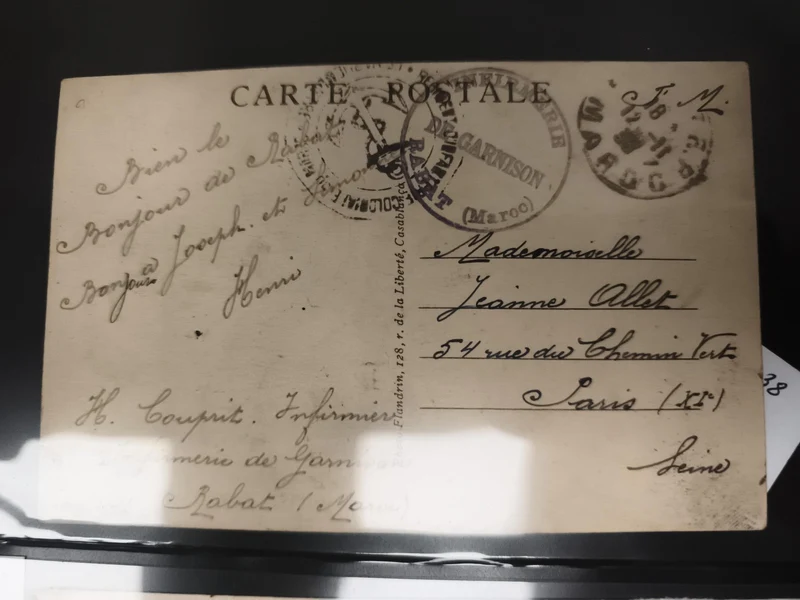 CARTE POSTALE
F. M.
INFIRMERIE
DE GARNISON
RABAT
(Maroc)
MAROC
18
12 - 11
Bien le
Bonjour de Rabat
Bonjour à Joseph et Simone
Henri
H. Couprit. Infirmier
Infirmerie de Garnison
Rabat (Maroc)
Flandrin, 128, r. de la Liberté, Casablanca
Mademoiselle
Jeanne Allet
54 rue du Chemin Vert
Paris (XIe)
Seine
38